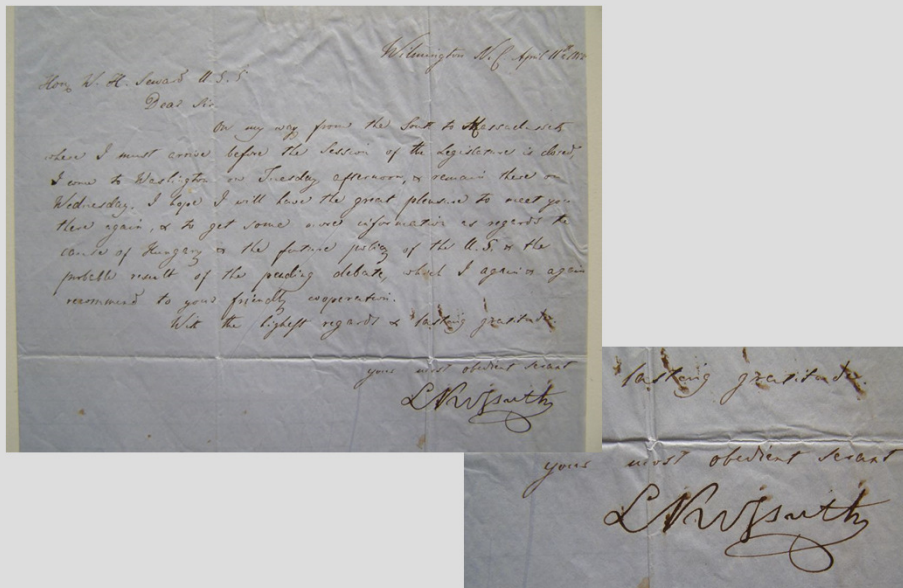 Wilmington N.C. April 11th 1852
Hon. W. H. Seward U.S.S.
Dear Sir
On my way from the South to Massachusetts
where I must arrive before the Session of the Legislature is closed,
I come to Washington on Tuesday afternoon, & remain there on
Wednesday. I hope I will have the great pleasure to meet you
there again, & to get some more information as regards the
cause of Hungary & the future policy of the U.S. & the
probable result of the pending debate, which I again & again
recommend to your friendly cooperation.
With the highest regards & lasting gratitude
yours most obedient servant
LKossuth
lasting gratitude.
yours most obedient servant
LKossuth